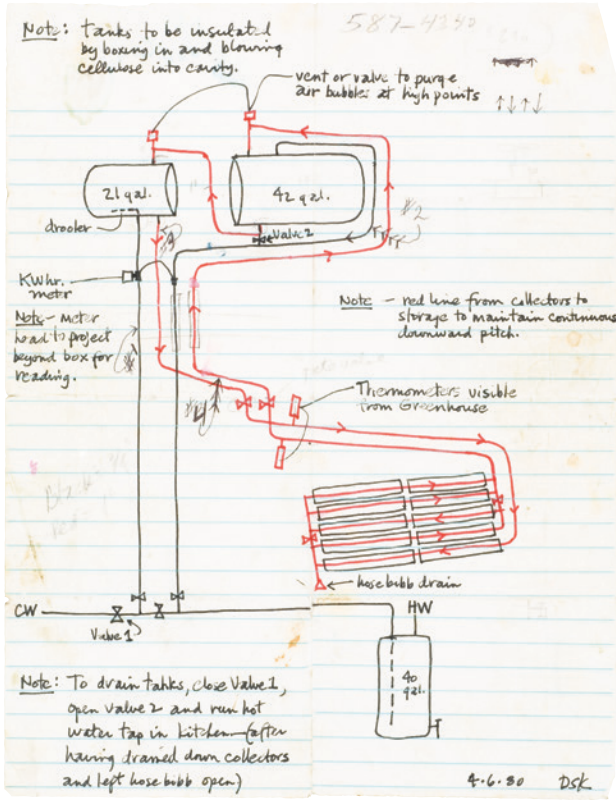 Note: Tanks to be insulated
by boxing in and blowing
cellulose into cavity.
587-4340
vent or valve to purge
air bubbles at high points
21 gal.
42 gal.
drooler
valve 2
#2
KWhr.
meter
Note - meter
head to project
beyond box for
reading.
Note - red line from collectors to
storage to maintain continuous
downward pitch.
Thermometers visible
from Greenhouse
hose bibb drain
CW
Valve 1
HW
40
gal.
Note: To drain tanks, close Valve 1,
open valve 2 and run hot
water tap in kitchen (after
having drained down collectors
and left hose bibb open)
4.6.80 DSK